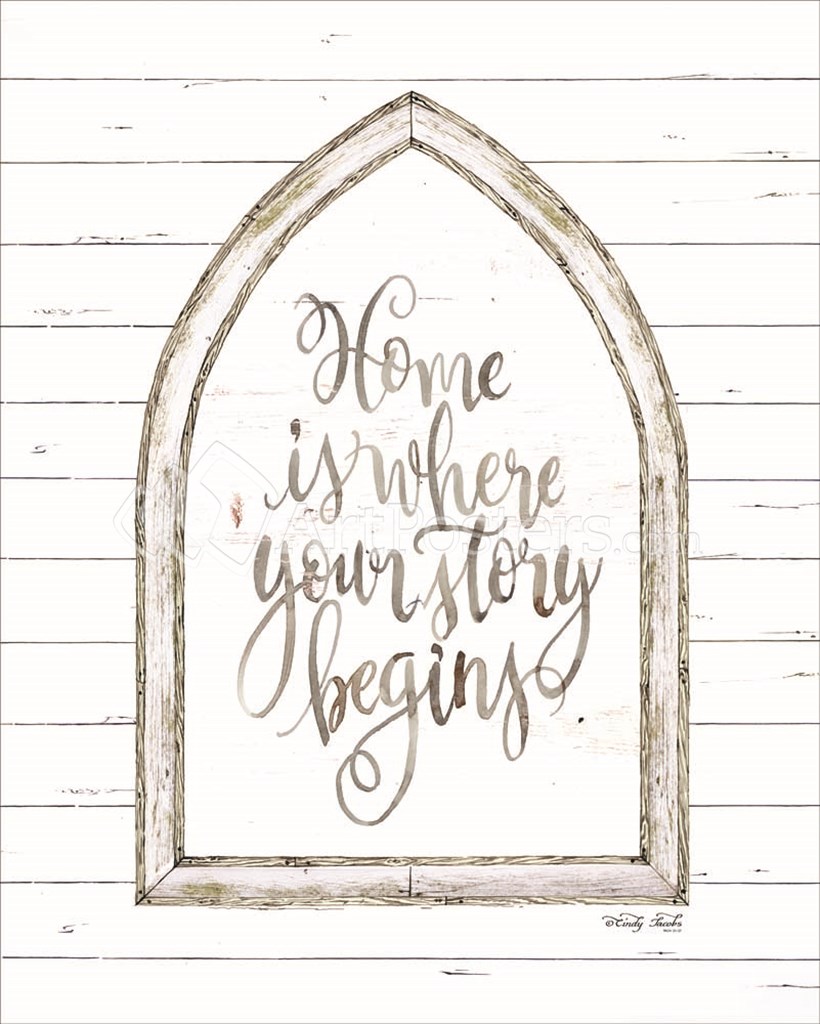 Home
is where
your story
begins
ArtPosters.com
©Cindy Jacobs